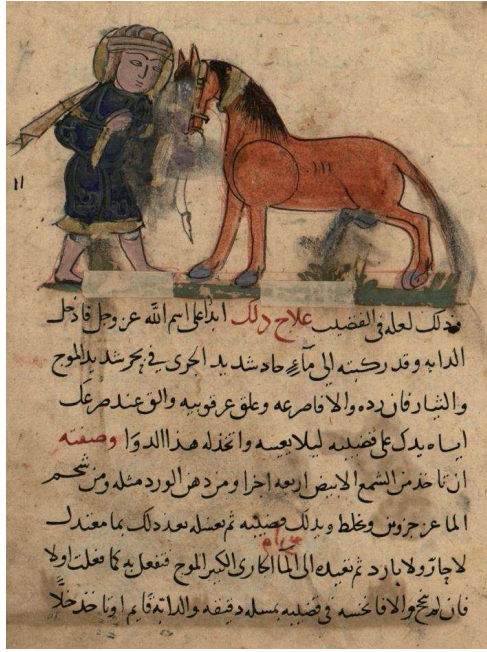 ١١
فذلك لعله في القضيب علاج ذلك ابدا على اسم الله عز وجل فادخل
الدابه وقد ركبته الى مآء حاد شديد الجرى في بحر شديد الموج
والتيار فان رده والا فاصرعه وعلق عرقوبيه والق عند صرعك
اياه يدك على قضيبه ليلا يعيبه واتخذ له هذا الدوا وصفته
ان تاخذ من الشمع الابيض اربعه اجزا ومن دهن الورد مثله ومن شحم
الماعز جزوين وتخلط ويدلك قضيبه ثم تغسله بعد ذلك بما معتدل
لا حار ولا بارد ثم تعيده الى المآ الجارى الكبير الموج فتفعل به كما فعلت اولا
فان لم ينجح والا فانخسه في قضيبه بمسله دقيقه والدابه قايم او تاخذ خلا